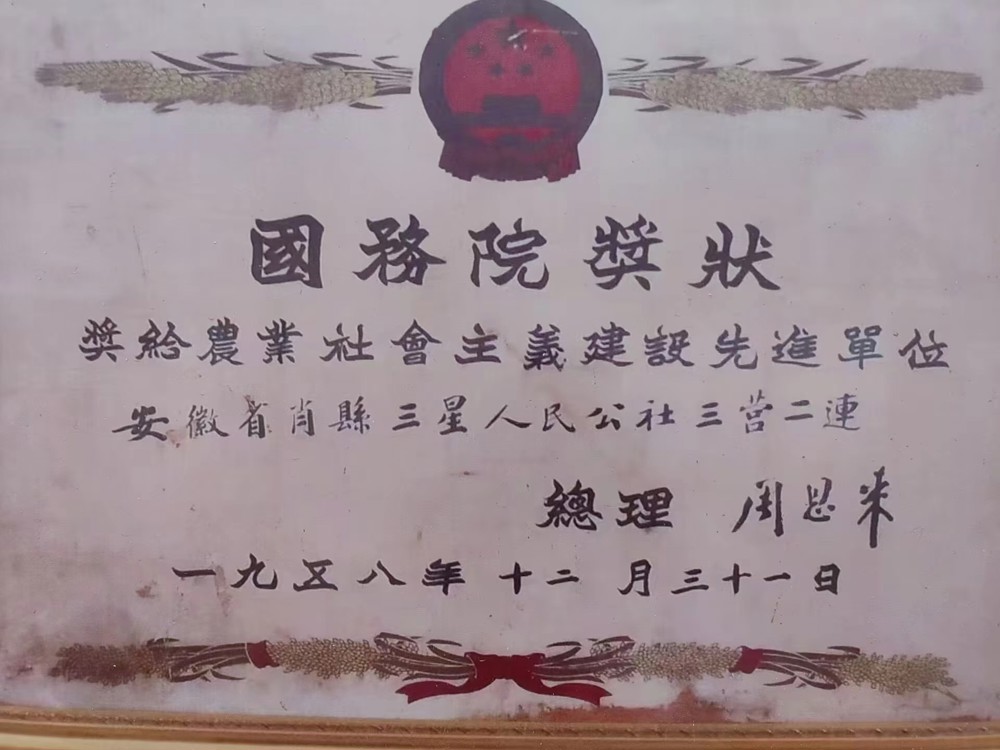 國務院獎狀
獎給農業社會主義建設先進單位
安徽省肖縣三星人民公社三营二連
總理 周恩来
一九五八年 十二月三十一日